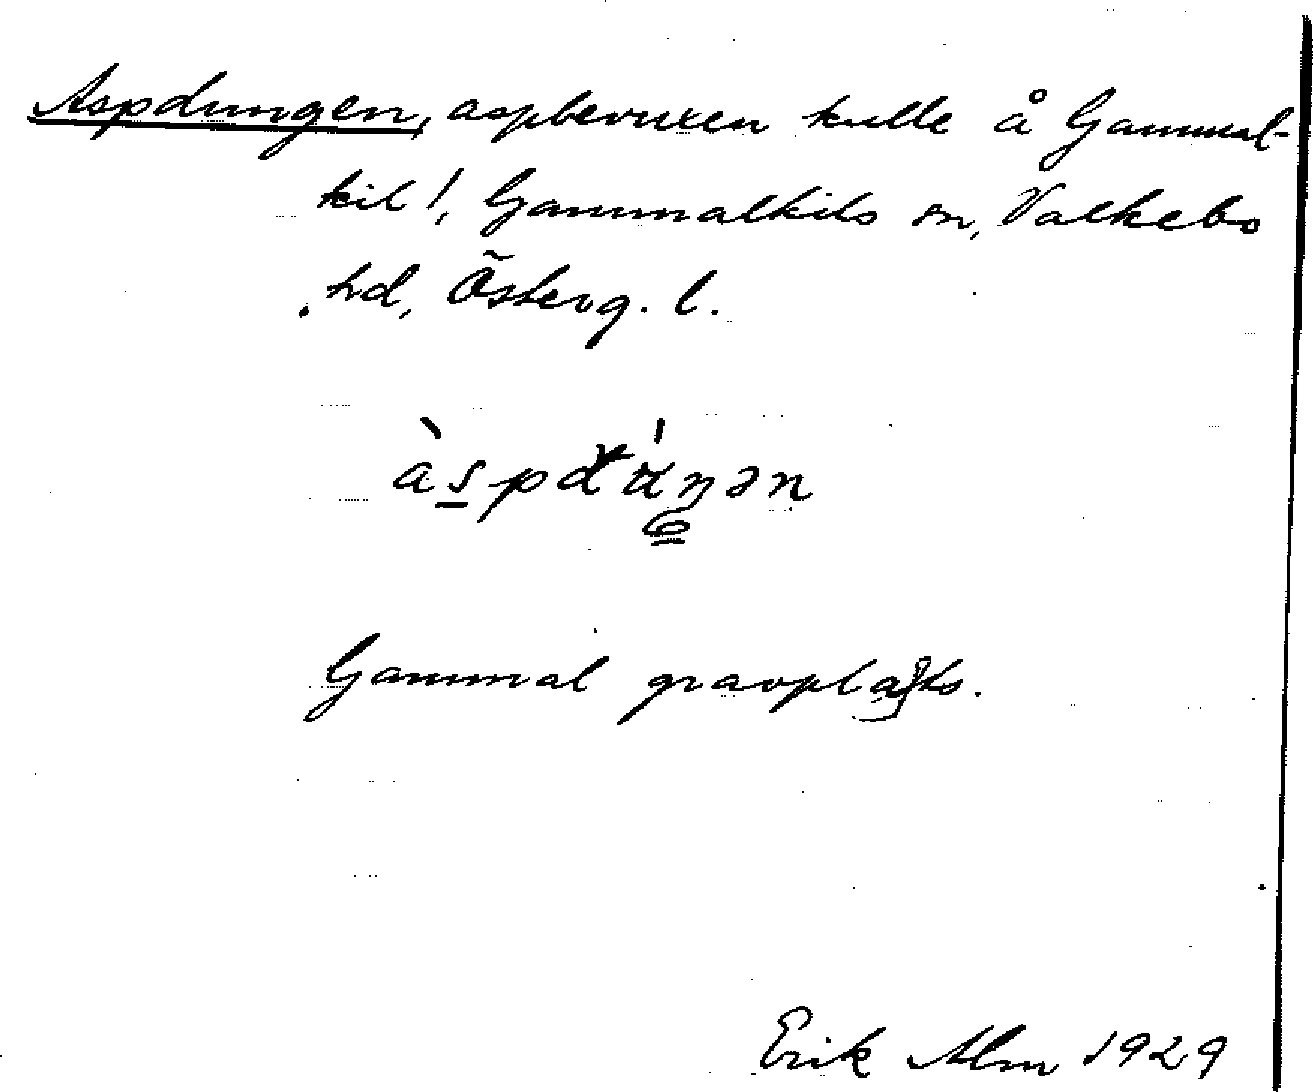 Aspdungen, aspbevuxen kulle å Gammal-
kil!, Gammalkils sn, Valkebo
hd, Österg. l.
Gammal gravplats.
Erik Alm 1929